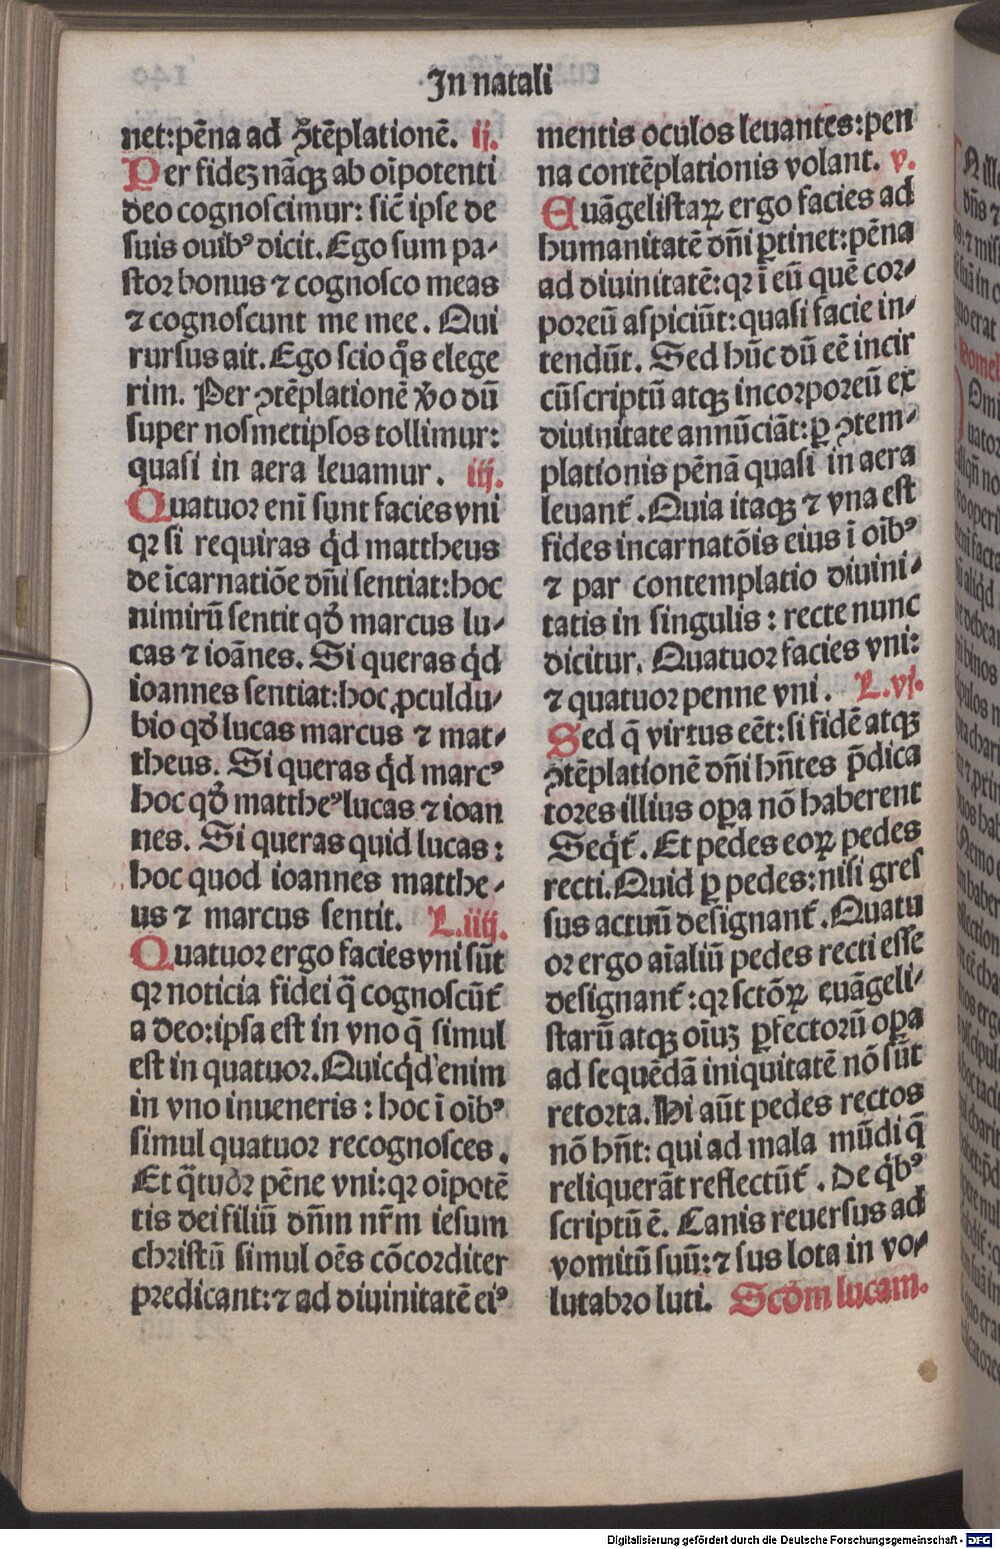 In natali
net:pēna ad ꝯtēplationē. ij.
Per fideꝫ nāqꝫ ab oīpotenti
deo cognoſcimur: ſic̄ ipſe de
ſuis ouibꝰ dicit. Ego ſum pa⸗
ſtor bonus ⁊ cognoſco meas
⁊ cognoſcunt me mee. Qui
rurſus ait. Ego ſcio q̊s elege
rim. Per ꝯtēplationē v̊o dū
ſuper noſmetipſos tollimur:
quaſi in aera leuamur. iij.
Quatuor eni ſunt facies vni
qꝛ ſi requiras qd̓ mattheus
de īcarnatiōe dn̄i ſentiat: hoc
nimirū ſentit qd̓ marcus lu⸗
cas ⁊ ioānes. Si queras qd̓
ioannes ſentiat: hoc ꝓculdu⸗
bio qd̓ lucas marcus ⁊ mat⸗
theus. Si queras qd̓ marcꝰ
hoc qd̓ mattheꝰ lucas ⁊ ioan
nes. Si queras quid lucas:
hoc quod ioannes matthe⸗
us ⁊ marcus ſentit. L.iiij.
Quatuor ergo facies vni ſūt
qꝛ noticia fidei q̄ cognoſcūt᷑
a deo: ipſa eſt in vno q̄ ſimul
eſt in quatuor. Quicqd̓ enim
in vno inueneris: hoc ī oībꝰ
ſimul quatuor recognoſces.
Et q̄tuor pēne vni: qꝛ oīpotē
tis dei filiū dn̄m nr̄m ieſum
chriſtū ſimul oēs cōcorditer
predicant: ⁊ ad diuinitatē eiꝰ
mentis oculos leuantes: pen
na contēplationis volant. v.
Euāgeliſtaꝝ ergo facies ad
humanitatē dn̄i ꝑtinet: pēna
ad diuinitatē: qꝛ ī eū quē cor⸗
poreū aſpiciūt: quaſi facie in⸗
tendūt. Sed hūc dū eē incir
cūſcriptū atqꝫ incorporeū ex
diuinitate annūciāt: ꝑ ꝯtem⸗
plationis pēnā quaſi in aera
leuant᷑. Quia itaqꝫ ⁊ vna eſt
fides incarnatōis eius ī oībꝰ
⁊ par contemplatio diuini⸗
tatis in ſingulis: recte nunc
dicitur. Quatuor facies vni:
⁊ quatuor penne vni. L.vj.
Sed q̄ virtus eēt: ſi fidē atqꝫ
ꝯtēplationē dn̄i hn̄tes p̄dica
tores illius oꝑa nō haberent
Seqt᷑. Et pedes eoꝝ pedes
recti. Quid ꝑ pedes: niſi greſ
ſus actuū deſignant᷑. Quatu
or ergo aīaliū pedes recti eſſe
deſignant᷑: qꝛ ſctōꝝ euāgeli⸗
ſtarū atqꝫ oīuꝫ ꝑfectorū oꝑa
ad ſequēdā iniquitatē nō ſūt
retorta. Hi aūt pedes rectos
nō hn̄t: qui ad mala mūdi q̄
reliquerāt reflectūt᷑. De qibꝰ
ſcriptū ē. Canis reuerſus ad
vomitū ſuū: ⁊ ſus lota in vo⸗
lutabro luti. Scd̓m lucam.
Digitalisierung gefördert durch die Deutsche Forschungsgemeinschaft - DFG